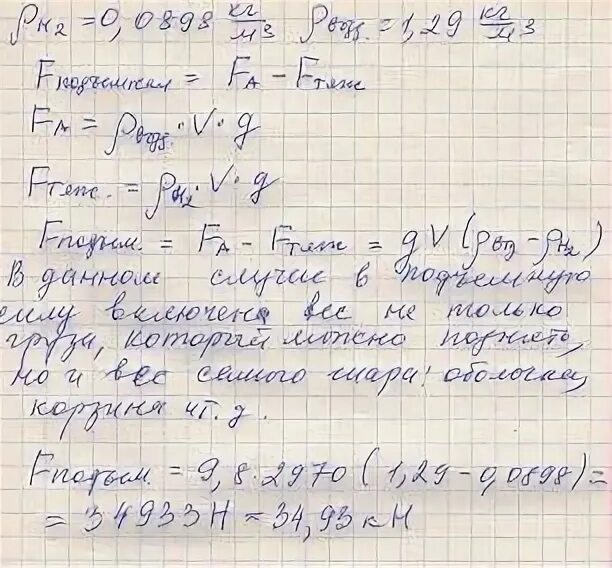 ρH₂ = 0,0898 кг/м³ ρвозд. = 1,29 кг/м³
Fподъемная = FA − Fтяж
FA = ρвозд. · V · g
Fтяж. = ρH₂ · V · g
Fподъем. = FA − Fтяж = gV(ρвозд − ρH₂)
В данном случае в подъемную
силу включена вес не только
груза, который можно поднять,
но и вес самого шара: оболочка,
корзина и т. д.
Fподъем. = 9,8 · 2970 (1,29 − 0,0898) =
= 34933 Н = 34,93 кН